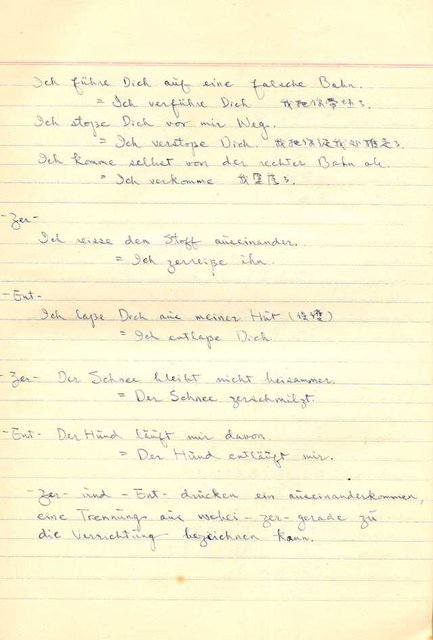 Ich führe Dich auf eine falsche Bahn.
= Ich verführe Dich 我把你帶坏了.
Ich stoße Dich vor mir Weg.
= Ich verstoße Dich. 我把你從我 推走了.
Ich komme selbst von der rechter Bahn ab.
= Ich verkomme 我墮落了.
- Zer -
Ich reisse den Stoff auseinander.
= Ich zerreiße ihn.
- Ent -
Ich laße Dich aus meiner Hut (
= Ich entlaße Dich
- Zer - Der Schnee bleibt nicht beisammer.
= Der Schnee zerschmilzt.
- Ent - Der Hund läuft mir davon.
= Der Hund entläuft mir.
- Zer - und - Ent - drücken ein auseinanderkommen,
eine Trennung aus wobei - zer - gerade zu
die Vernichtung bezeichnen kann.